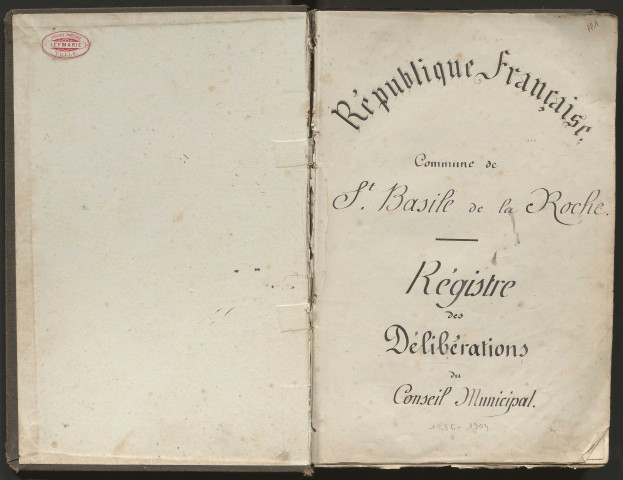 LEYMARIE
TULLE
République Française.
Commune de
St. Basile de la Roche.
Régistre
des
Délibérations
du
Conseil Municipal.